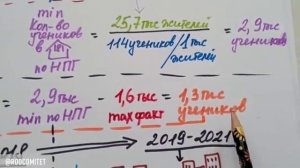 min
Кол-во
учеников
в
по НПГ
= 25,7 тыс жителей
114 учеников/1 тыс
/жителей
= 2,9 тыс
учеников
= 2,9 тыс - 1,6 тыс = 1,3 тыс
min по НПГ max факт учеников
2019-2021
@RODCOMITET